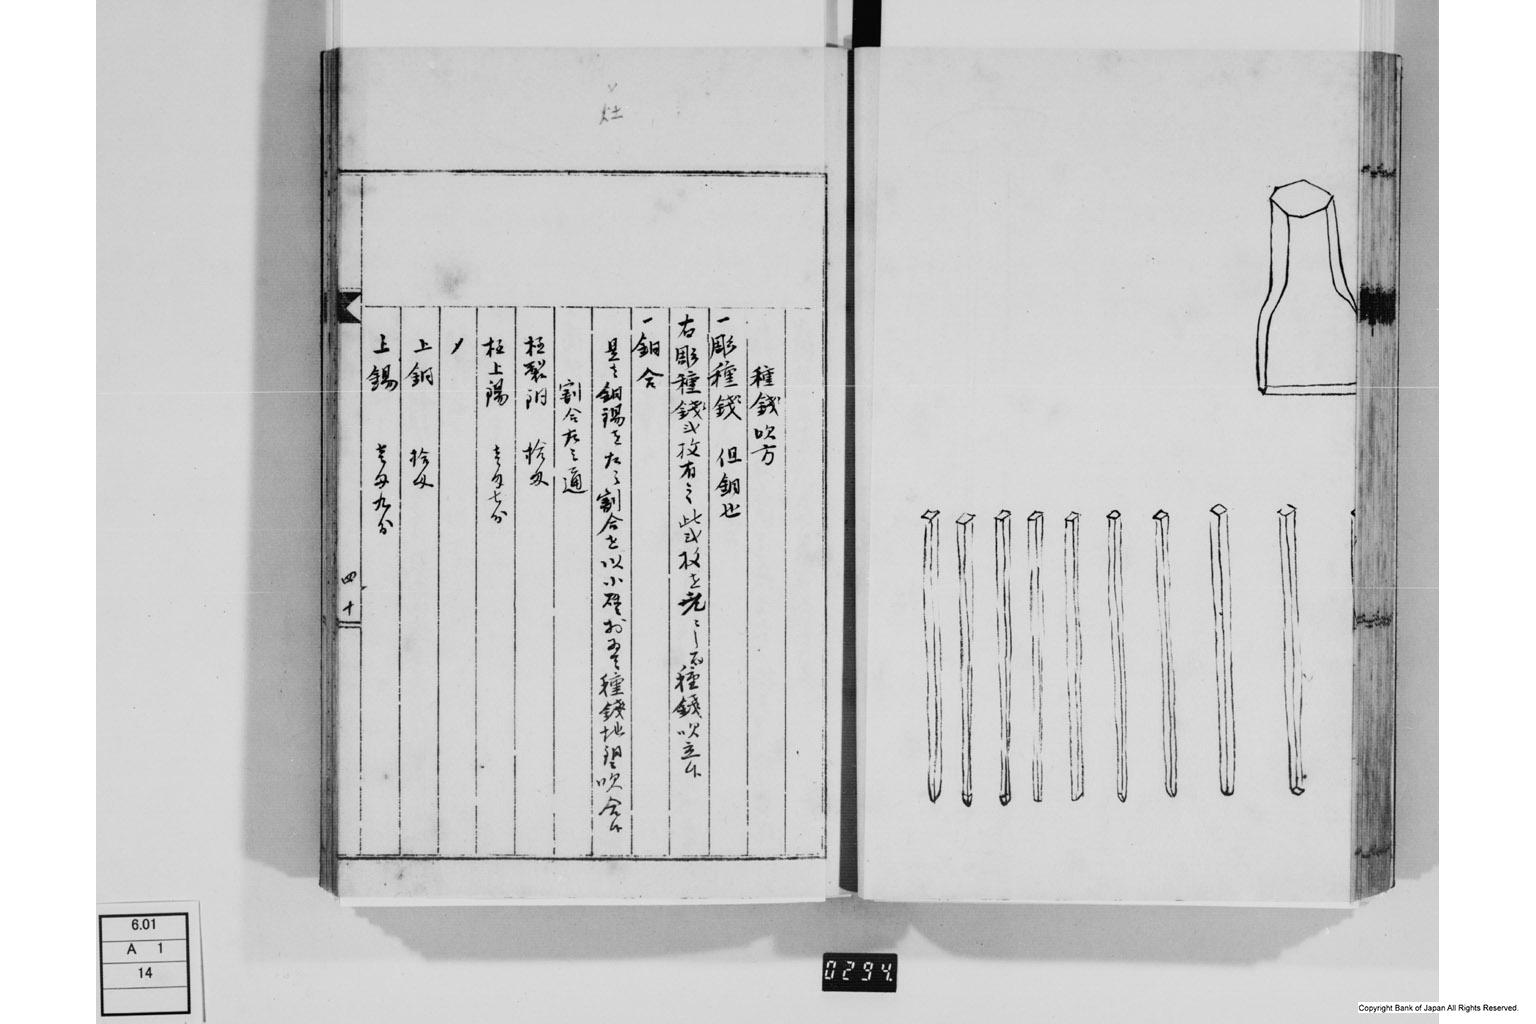 灶
種錢吹方
一彫種錢 但銅也
右彫種錢弐枚有之此弐枚を先にして種錢吹立候
一銅合
是は銅錫を左之割合を以小
種錢地銀吹合候
割合左之通
極製銅 拾匁
極上錫 壱匁七分
〆
上銅 拾匁
上錫 壱匁九分
四十
6.01
A 1
14
0294.
Copyright Bank of Japan All Rights Reserved.